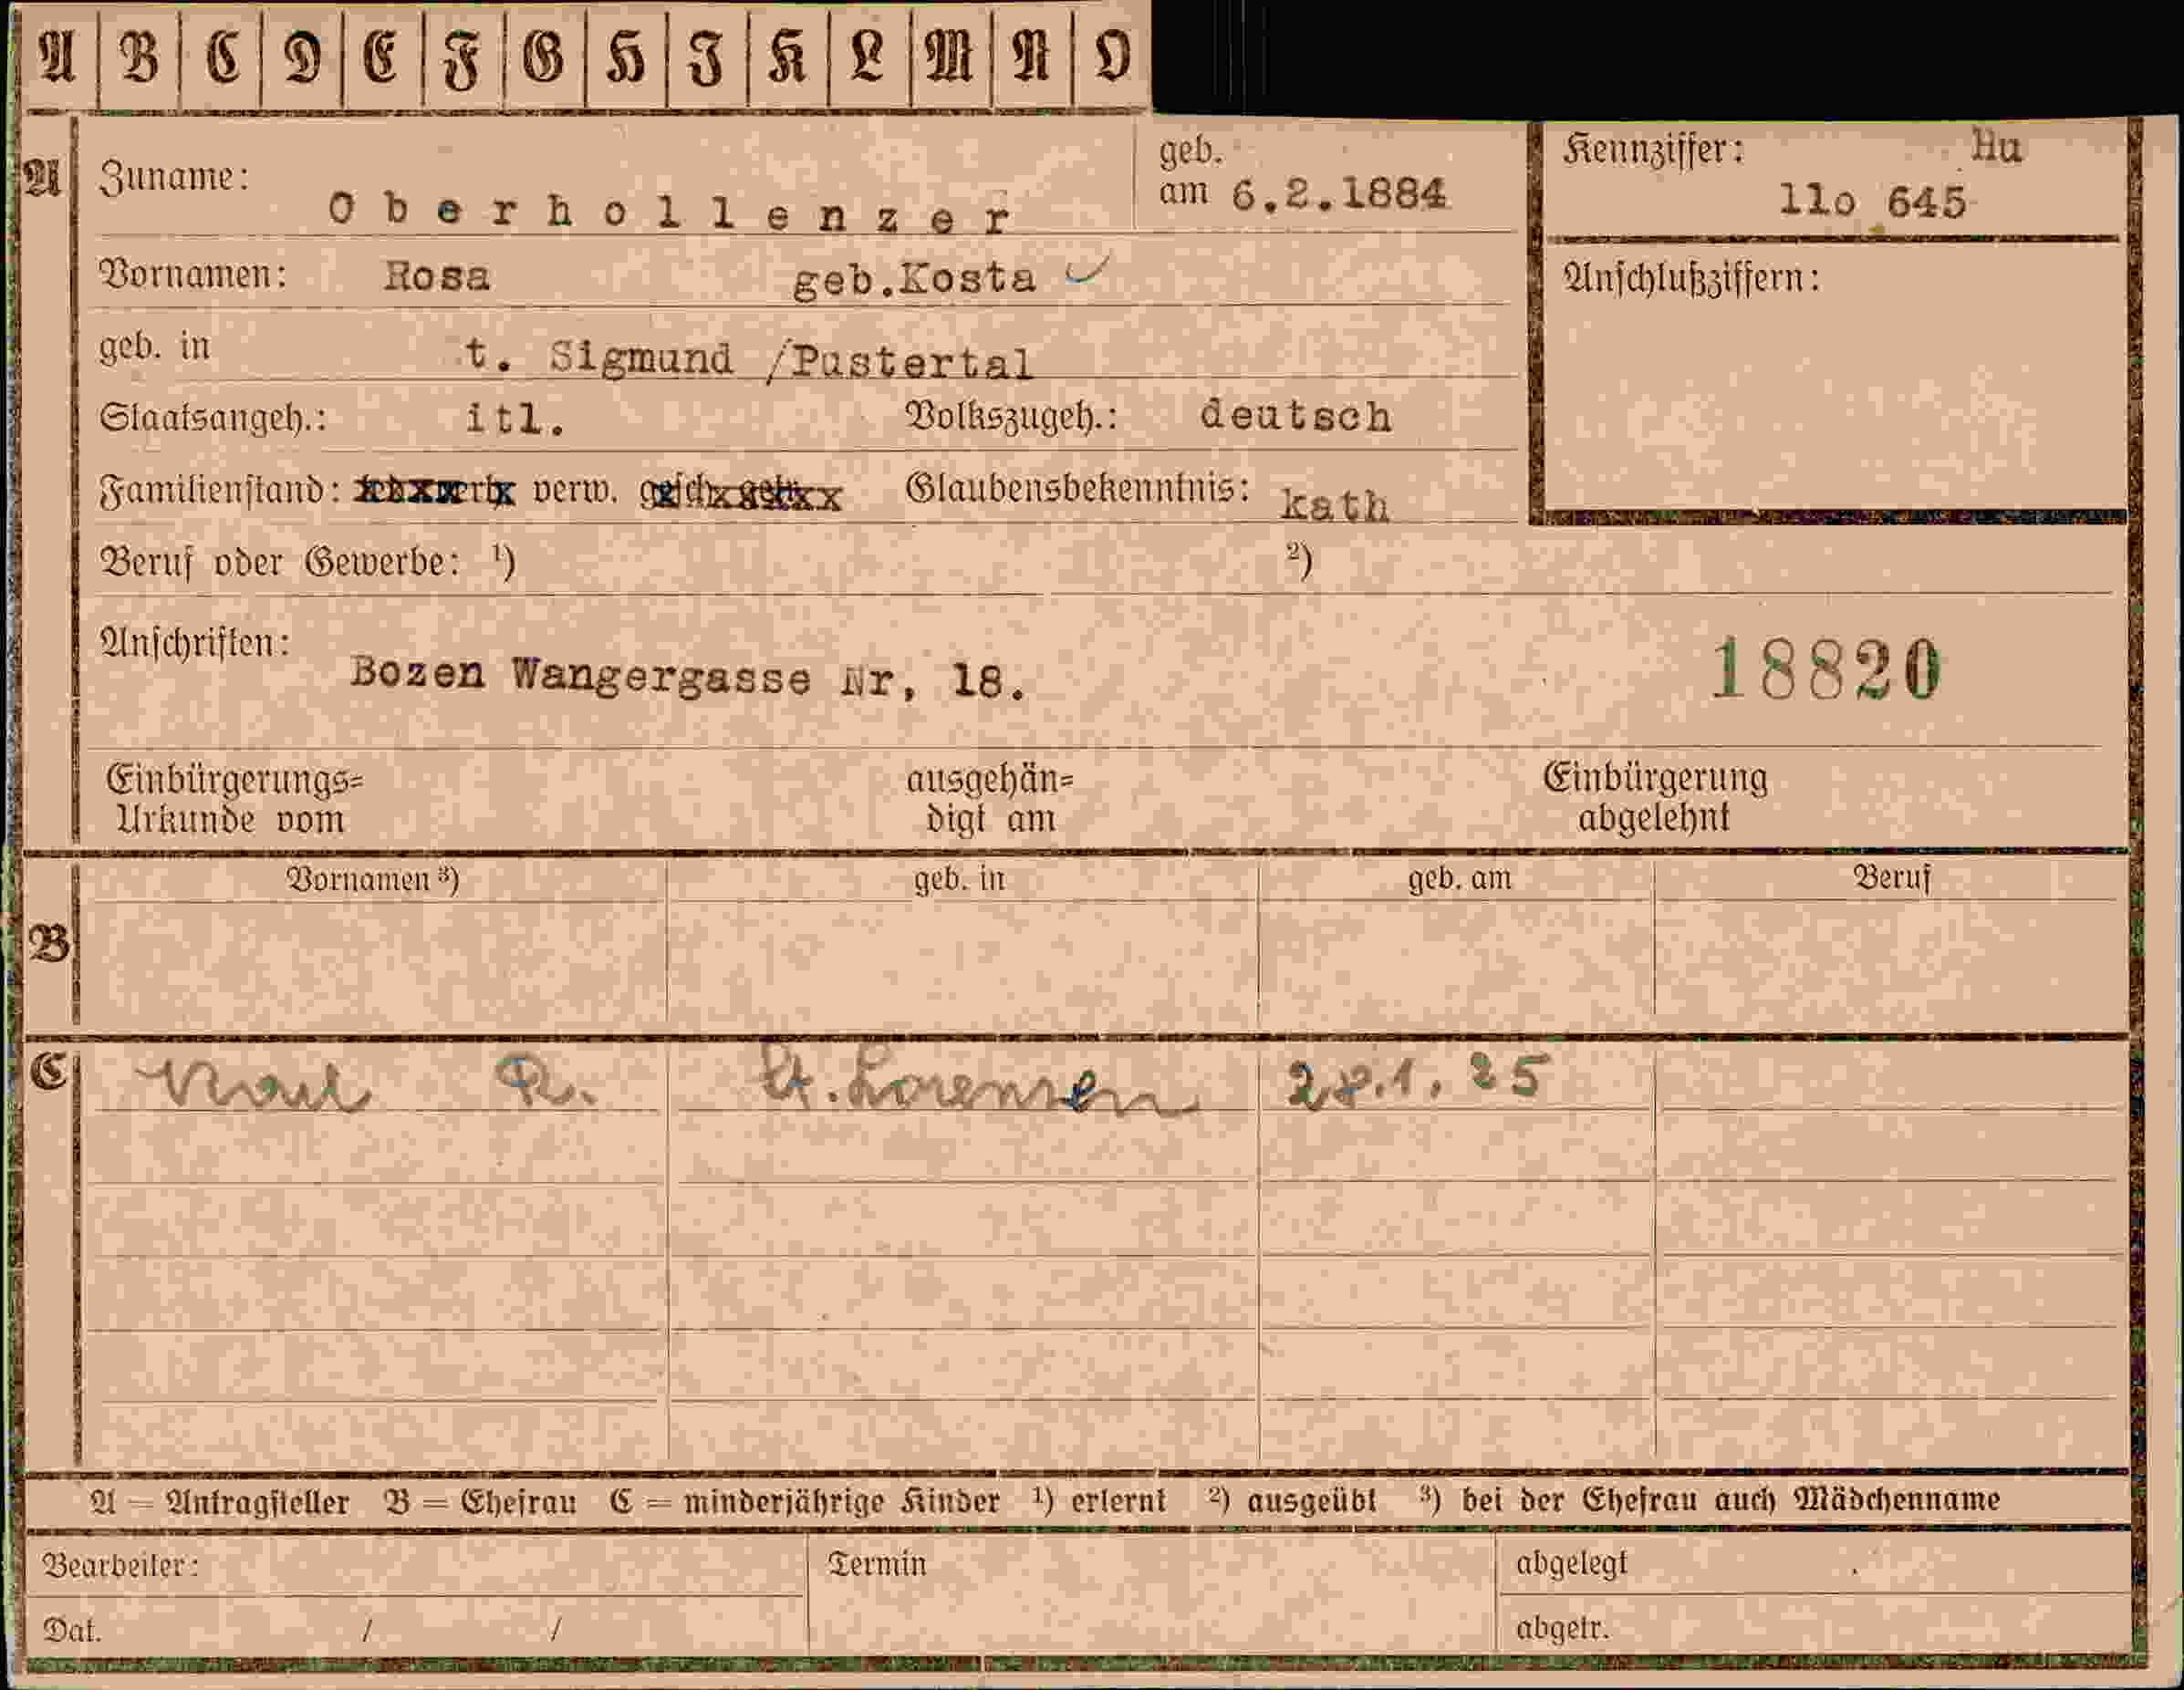 A B C D E F G H I K L M N O
A Zuname: Oberhollenzer geb. am 6.2.1884
Kennziffer: Hu
11o 645
Vornamen: Rosa geb.Kosta
Anschlußziffern:
geb. in t. Sigmund /Pustertal
Staatsangeh.: itl. Volkszugeh.: deutsch
Familienstand: verw. Glaubensbekenntnis: kath
Beruf oder Gewerbe: ¹) ²)
Anschriften: Bozen Wangergasse Nr, 18.
18820
Einbürgerungs= ausgehän= Einbürgerung
Urkunde vom digt am abgelehnt
B Vornamen ³) geb. in geb. am Beruf
C Karl R. St. Lorenzen 28.1.25
A = Antragsteller B = Ehefrau C = minderjährige Kinder ¹) erlernt ²) ausgeübt ³) bei der Ehefrau auch Mädchenname
Bearbeiter: Termin abgelegt
Dat. / / abgetr.